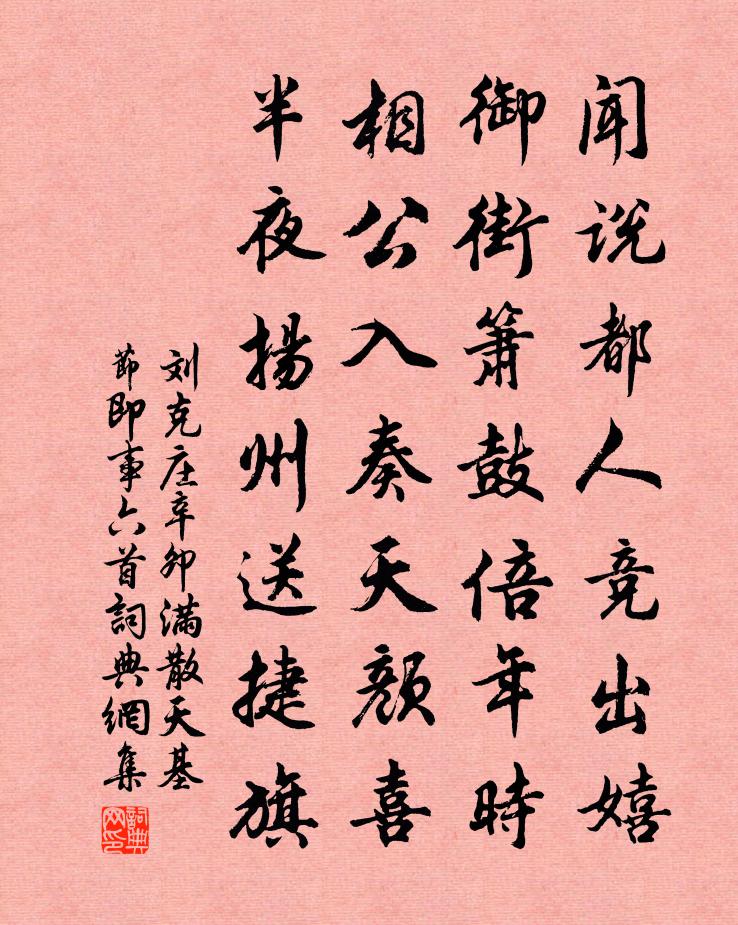 闻说都人竞出嬉
御街箫鼓倍年時
相公入奏天颜喜
半夜揚州送捷旗
刘克庄辛卯满散天基
節即事六首詞典網集
詞典网印